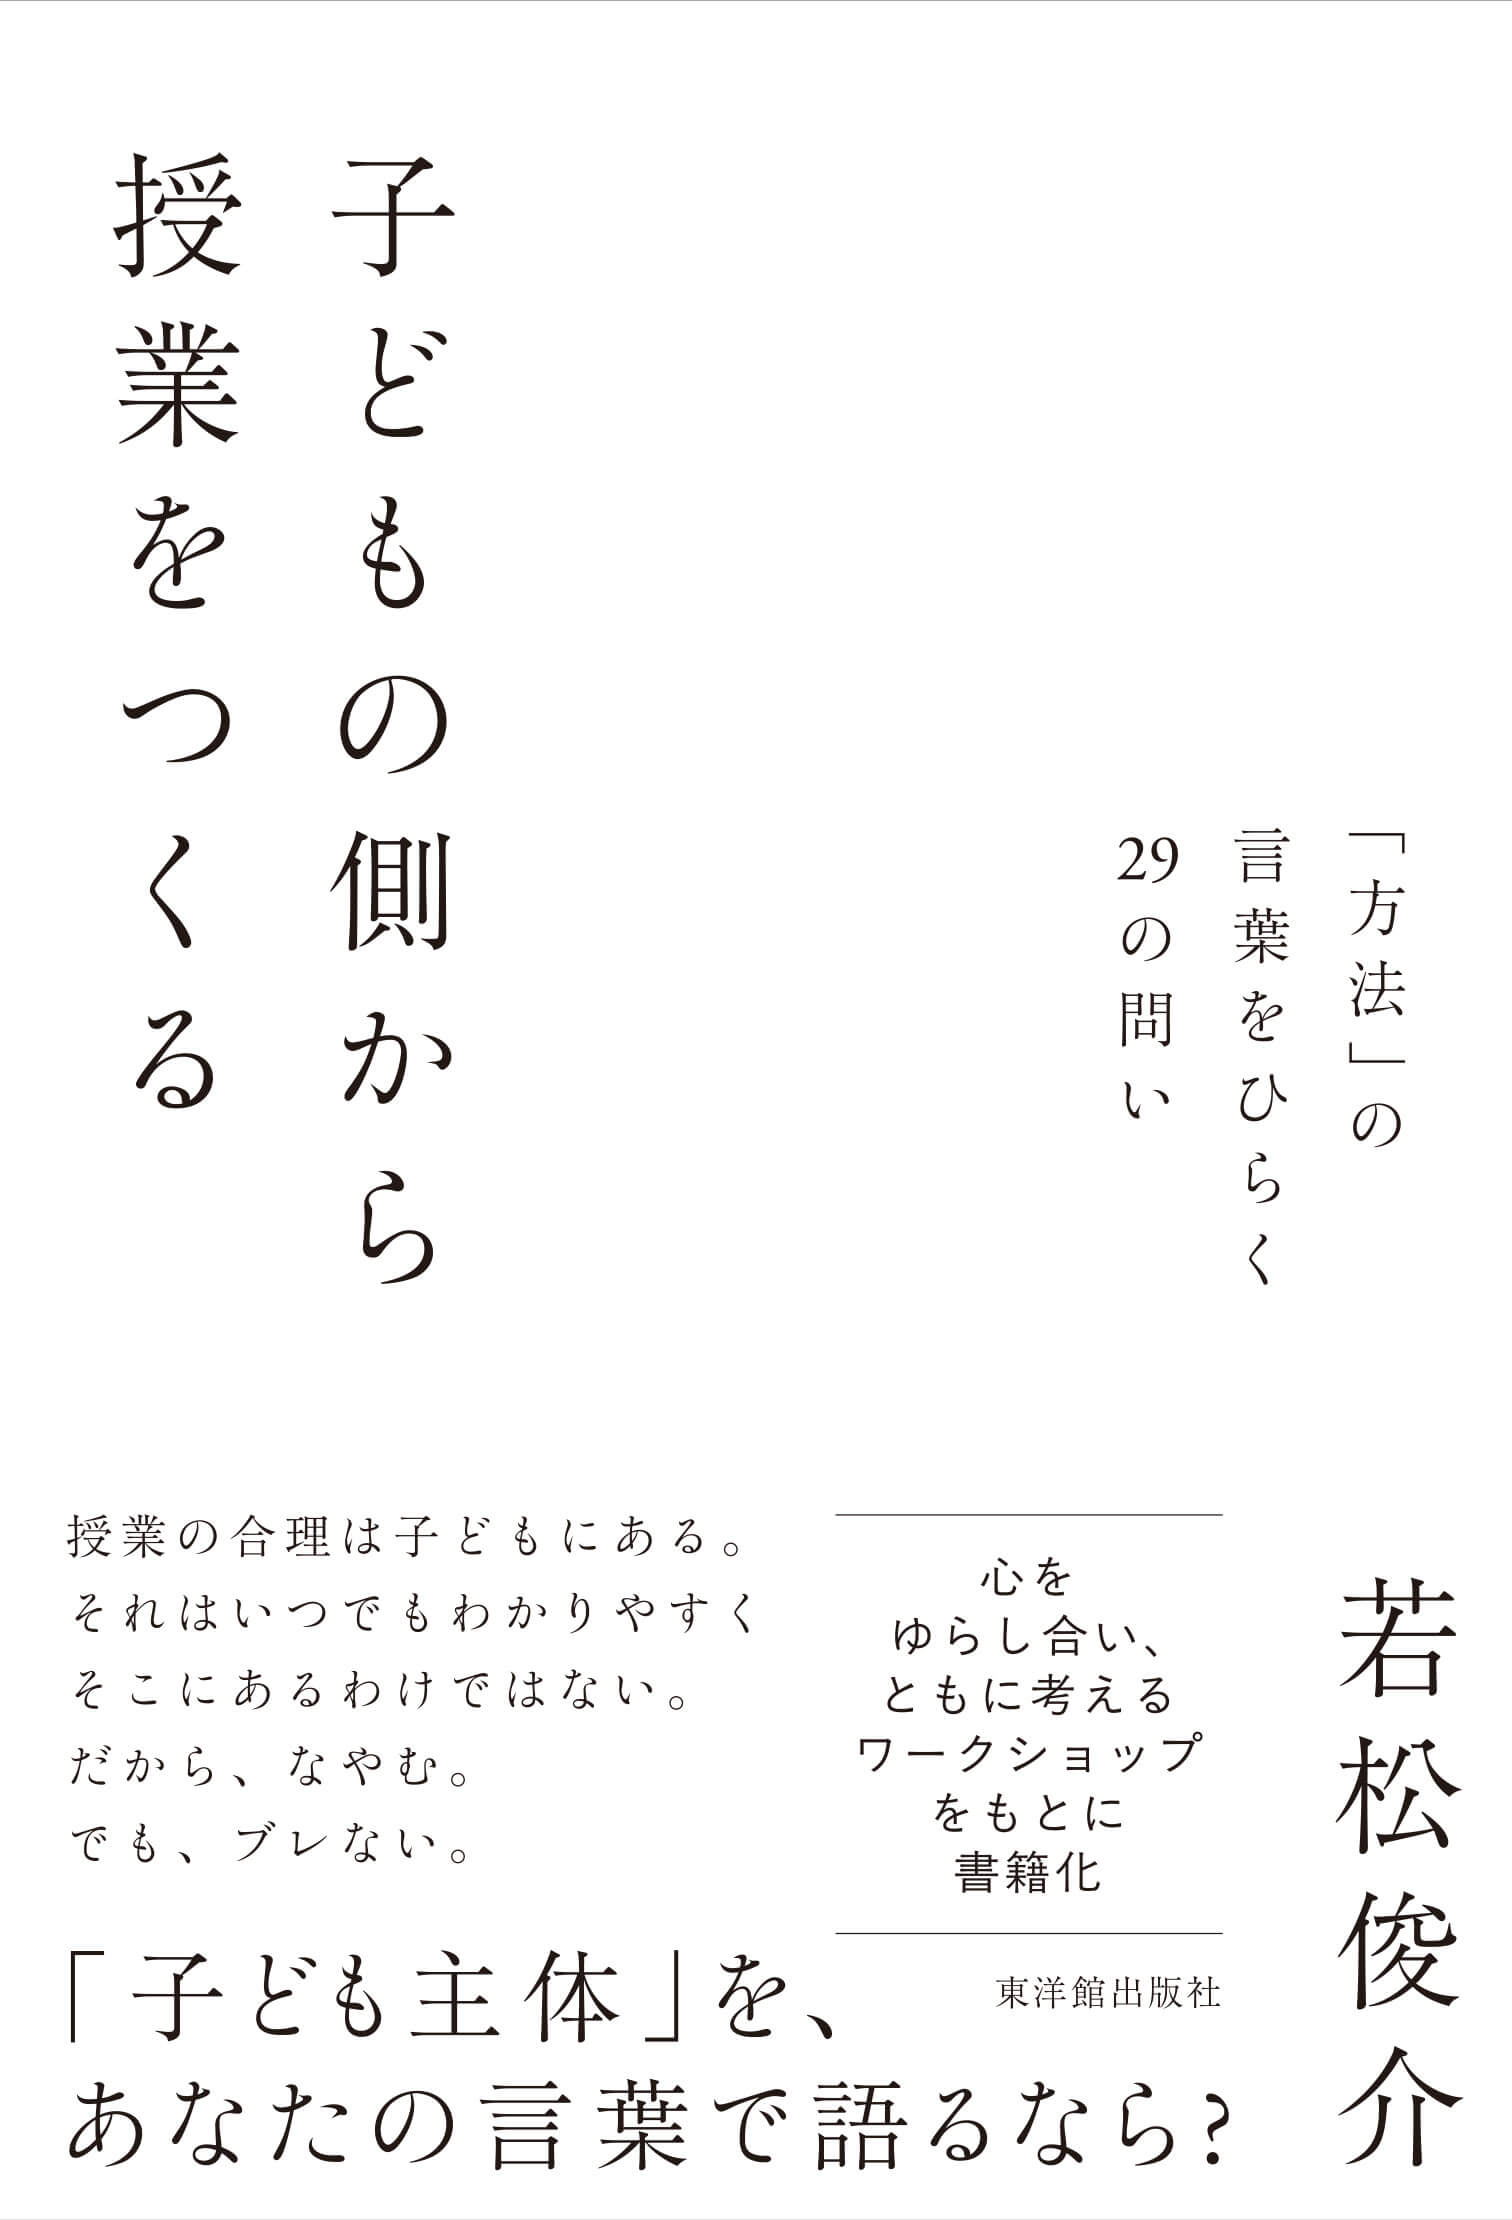 「方法」の
言葉をひらく
29の問い
子どもの側から
授業をつくる
若松俊介
心を
ゆらし合い、
ともに考える
ワークショップ
をもとに
書籍化
東洋館出版社
授業の合理は子どもにある。
それはいつでもわかりやすく
そこにあるわけではない。
だから、なやむ。
でも、ブレない。
「子ども主体」を、
あなたの言葉で語るなら?